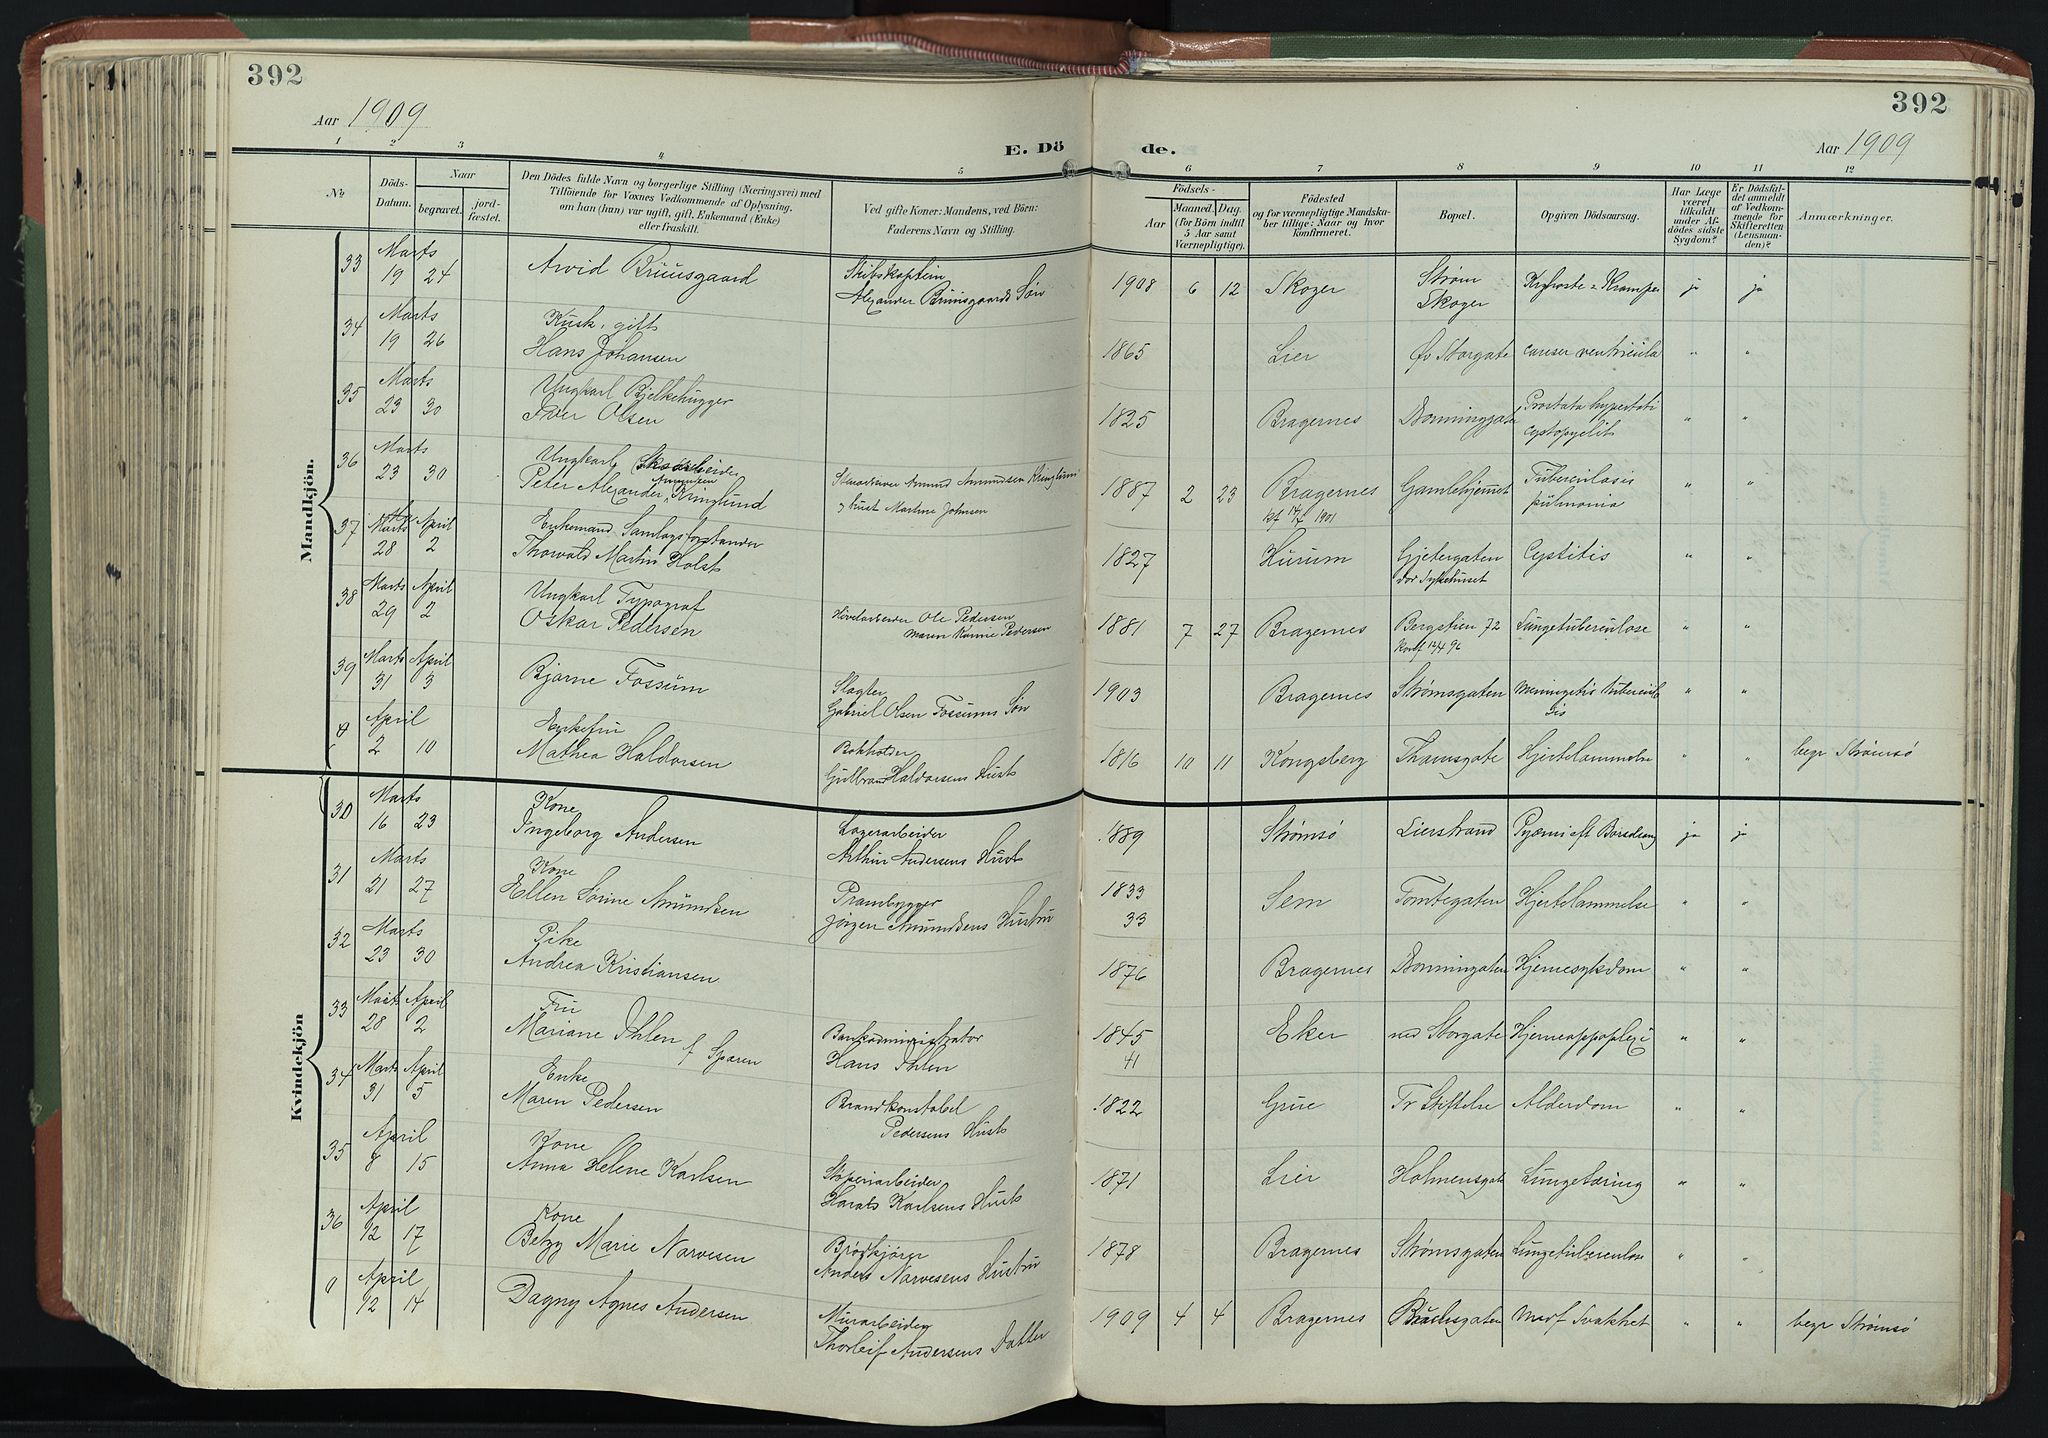 392
392
Aar 1909
Aar 1909
E. Dö de.
1 2 3 4 5 6 7 8 9 10 11 12
No
Döds-Datum.
Naar
begravet.
jord-fæstet.
Den Dödes fulde Navn og borgerlige Stilling (Næringsvei) med
Tilföiende for Voxnes Vedkommende af Oplysning,
om han (hun) var ugift, gift, Enkemand (Enke)
eller fraskilt.
Ved gifte Koner: Mandens, ved Börn:
Faderens Navn og Stilling.
Födsels-
Aar
Maaned. Dag.
(for Börn indtil
5 Aar samt
Værnepligtige).
Födested
og for værnepligtige Mandska-
ber tillige: Naar og hvor
konfirmeret.
Bopæl.
Opgiven Dödsaarsag.
Har Læge
været
tilkaldt
under Af-
dödes sidste
Sygdom?
Er Dödsfal-
det anmeldt
af Vedkom-
mende for
Skifteretten
(Lensman-
den)?
Anmærkninger.
Mandkjön.
33 Marts 19 24 Arvid Bruusgaard Skibskaptein
Alexander Bruusgaards Søn 1908 6 12 Skoger Strøm
Skoger Kighoste = Krampe ja ja
34 Marts 19 26 Kusk, gift
Hans Johansen 1865 Lier Øv Storgate cancer ventricula " "
35 Marts 23 30 Ungkarl Bjelkehugger
Iver Olsen 1825 Bragernes Dronninggaten Prostata hypertoti
cystopyelit " "
36 Marts 23 30 Ungkarl Skoarbeider
Peter Alexander Amundsen Kringlund Amund Amundsen Kringlund
Hust Martine Johnsen 1887 2 23 Bragernes
kf 1901 Gamlehjemmet Tuberculosis
pulmonia " "
37 Marts 28 April 2 Enkemand Samlagsforstander
Thorvald Martin Holst 1827 Hurum Gjetergaten
Sykehuset Cystitis " "
38 Marts 29 April 2 Ungkarl Typograf
Oskar Pedersen Høvelarbeider Ole Pedersen
Maren Karine Pedersen 1881 7 27 Bragernes Bergstien 72
Konf 12/4 96 Lungetuberculose " "
39 Marts 31 April 3 Bjarne Fossum Slagter
Gabriel Olsen Fossums Søn 1903 Bragernes Strømsgaten Meningetis tubercul
sis " "
April 2 10 Enkefru
Mathea Haldorsen Bokholder
Gulbrand Haldorsens Hust 1816 10 11 Kongsberg Thamsgate Hjertelammelse " " begr Strømsø
Kvindekjön
30 Marts 16 23 Kone
Ingeborg Andersen Lagerarbeider
Arthur Andersens Hust 1889 Strømsø Lierstrand Pyæmi eft Barsdseng ja ja
31 Marts 21 27 Kone
Ellen Sørine Amundsen Prambygger
Jørgen Amundsens Hustru 1833
33 Sem Tomtegaten Hjertelammelse " "
32 Marts 23 30 Pike
Andrea Kristiansen 1876 Bragernes Dronningaten Hjernesykdom " "
33 Marts 28 April 2 Fru
Mariane Ihlen f Sparen Bankadministrator
Hans Ihlen 1845
41 Eker ned Storgate Hjerneappoplexi " "
34 Marts 31 April 5 Enke
Maren Pedersen Brandkonstabel
Pedersens Hust 1822 Grue Tr Stiftelse Alderdom " "
35 April 8 15 Kone
Anna Helene Karlsen Støperiarbeider
Karlsens Hust 1871 Lier Holmensgate Lungetæring " "
36 April 12 17 Kone
Betzy Marie Narvesen Brødkjører
Anders Narvesens Hustru 1878 Bragernes Strømsgaten Lungetuberculose " "
April 12 14 Dagny Agnes Andersen Murarbeider
Thorleif Andersens Datter 1909 4 4 Bragernes Buchsgaten Medf Svakhet " " begr Strømsø